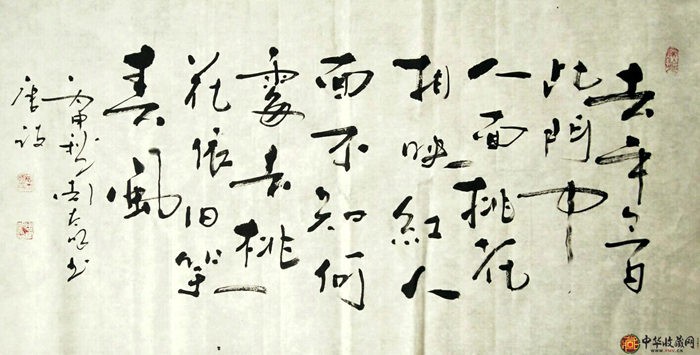 去年今日
此門中
人面桃花
相映紅人
面不知何
處去桃
花依旧笑
春風
丙申秋
唐诗
中华收藏网